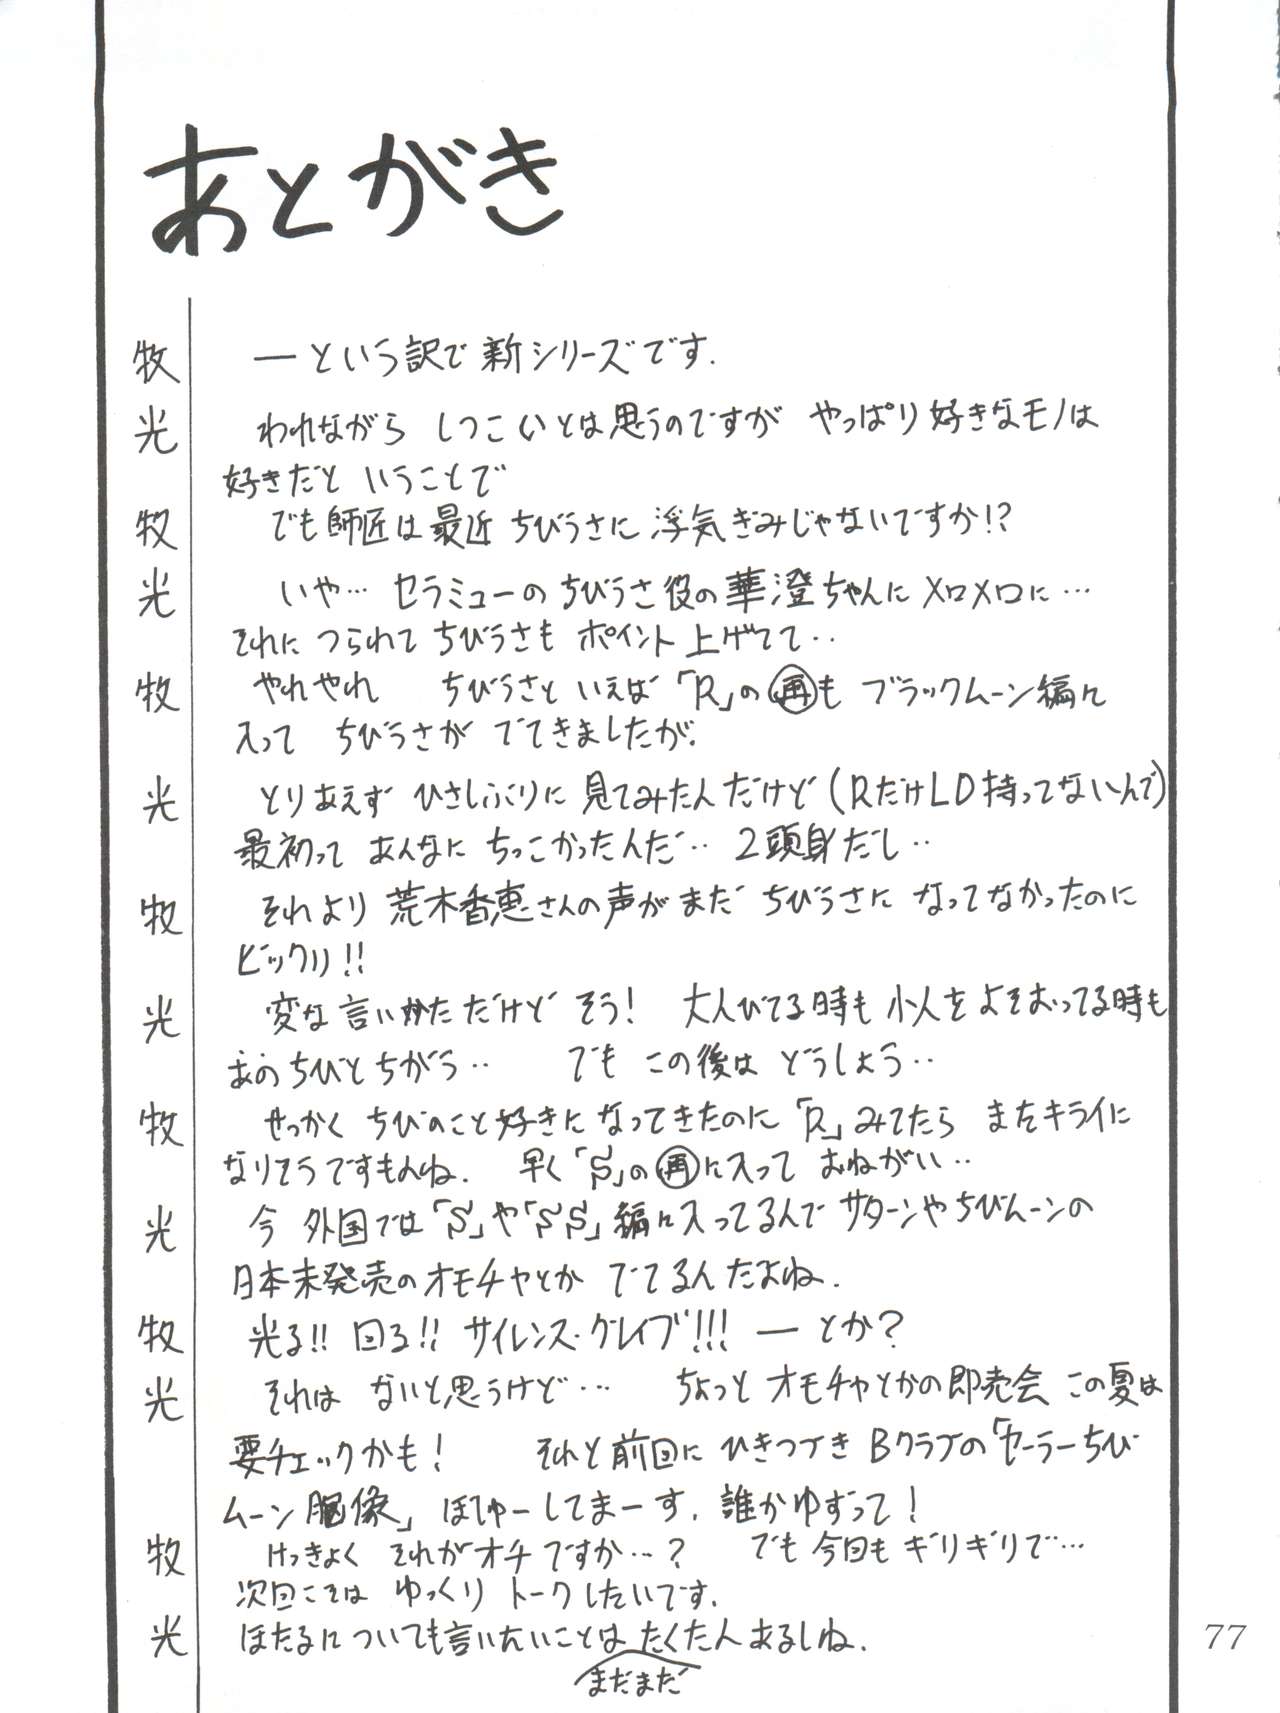 あとがき
牧 ーという訳で新シリーズです.
光 われながら しつこいとは思うのですが やっぱり好きなモノは
好きだと いうことで
牧 でも師匠は最近 ちびうさに 浮気ぎみじゃないですか!?
光 いや… セラミューの ちびうさ役の華澄ちゃんに メロメロに…
それに つられて ちびうさも ポイント上げてて‥
牧 やれやれ ちびうさと いえば「R」の再も ブラックムーン編に
入って ちびうさが でてきましたが.
光 とりあえず ひさしぶりに 見てみたんだけど (RだけLD持ってないんで)
最初って あんなに ちっこかったんだ‥ 2頭身だし‥
牧 それより 荒木香恵さんの声が まだ ちびうさに なってなかったのに
ビックリ!!
光 変な言いかただけど そう! 大人びてる時も 小人をよそおってる時も
あのちびとちがう‥ でも この後は どうしよう‥
牧 せっかく ちびのこと好きになってきたのに「R」みてたら またキライに
なりそうですもんね. 早く「S」の再に入って おねがい‥
光 今 外国では「S」や「SS」編に入ってるんで サターンやちびムーンの
日本未発売のオモチャとか でてるんだよね.
牧 光る!! 回る!! サイレンス・グレイブ!!! ー とか?
光 それは ないと思うけど… ちょっと オモチャとかの即売会 この夏は
要チェックかも! それと前回に ひきつづき Bクラブの「セーラーちび
ムーン胸像」 ぼしゅーしてまーす. 誰かゆずって!
牧 けっきょく それがオチですか…? でも今回も ギリギリで…
次回こそは ゆっくり トークしたいです.
光 ほたるについても言いたいことは たくさん あるしね.
まだまだ
77